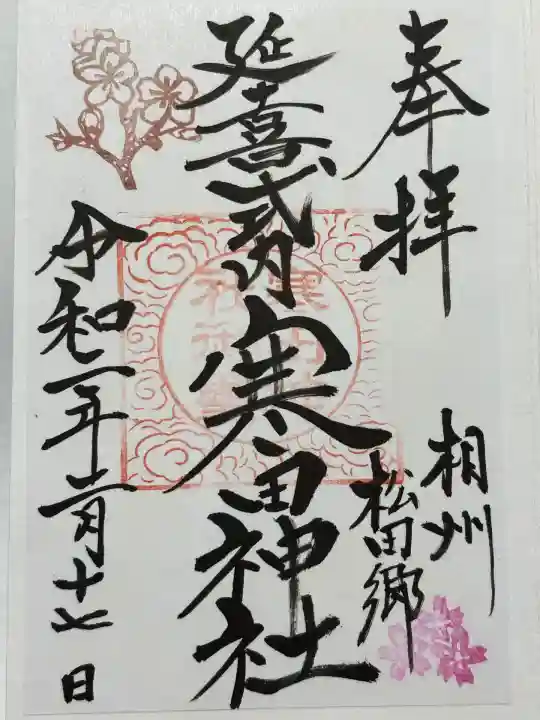 奉拝
相州
松田郷
延喜式内寒田神社
令和二年二月十七日